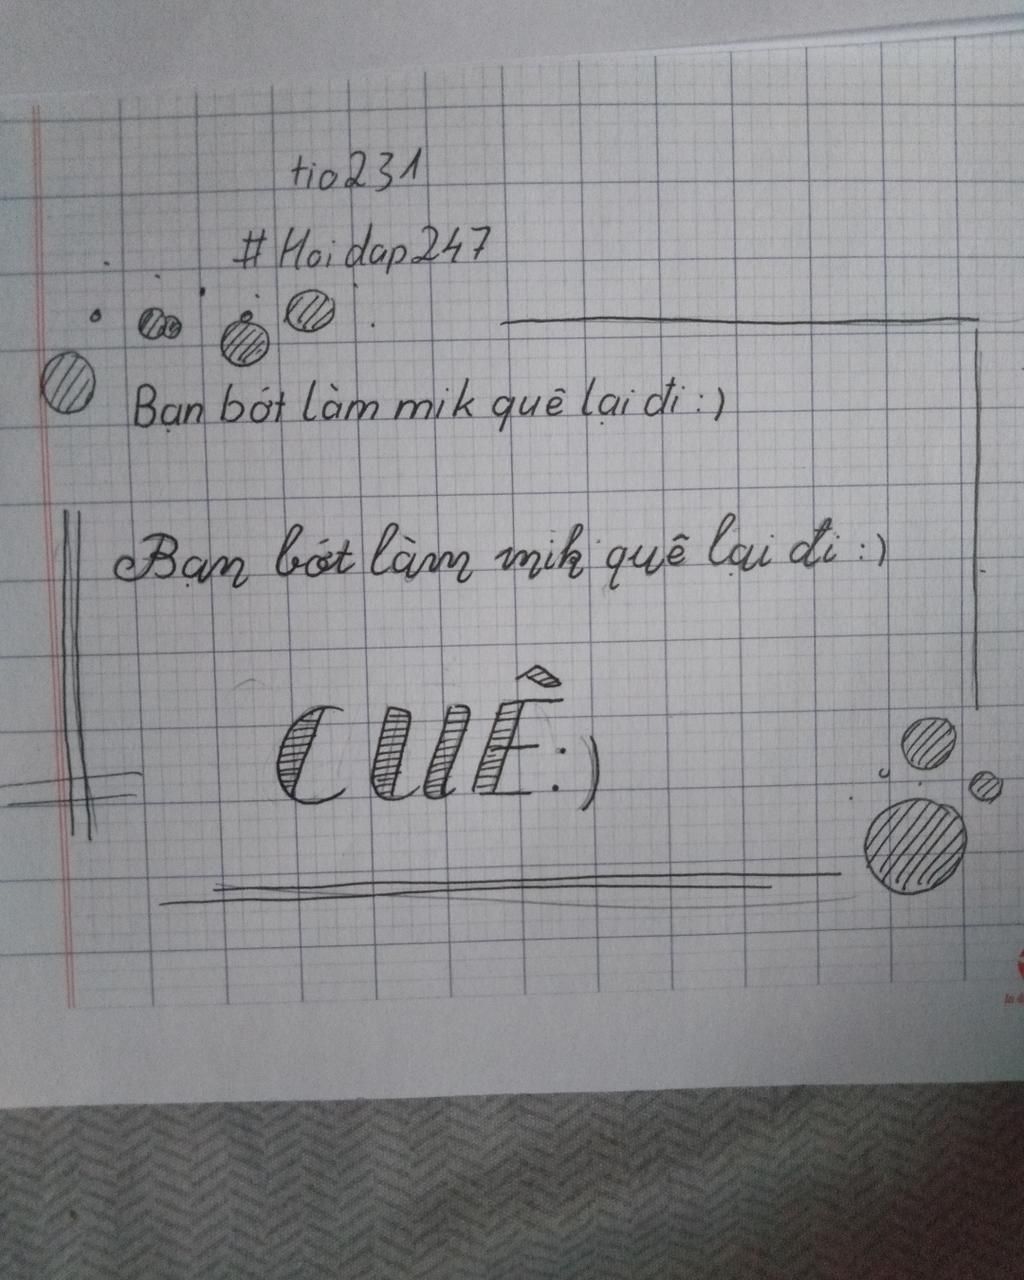 tio231
#Hoidap247
Bạn bớt làm mik quê lại đi :)
Bạn bớt làm mik quê lại đi :)
CUÊ :)